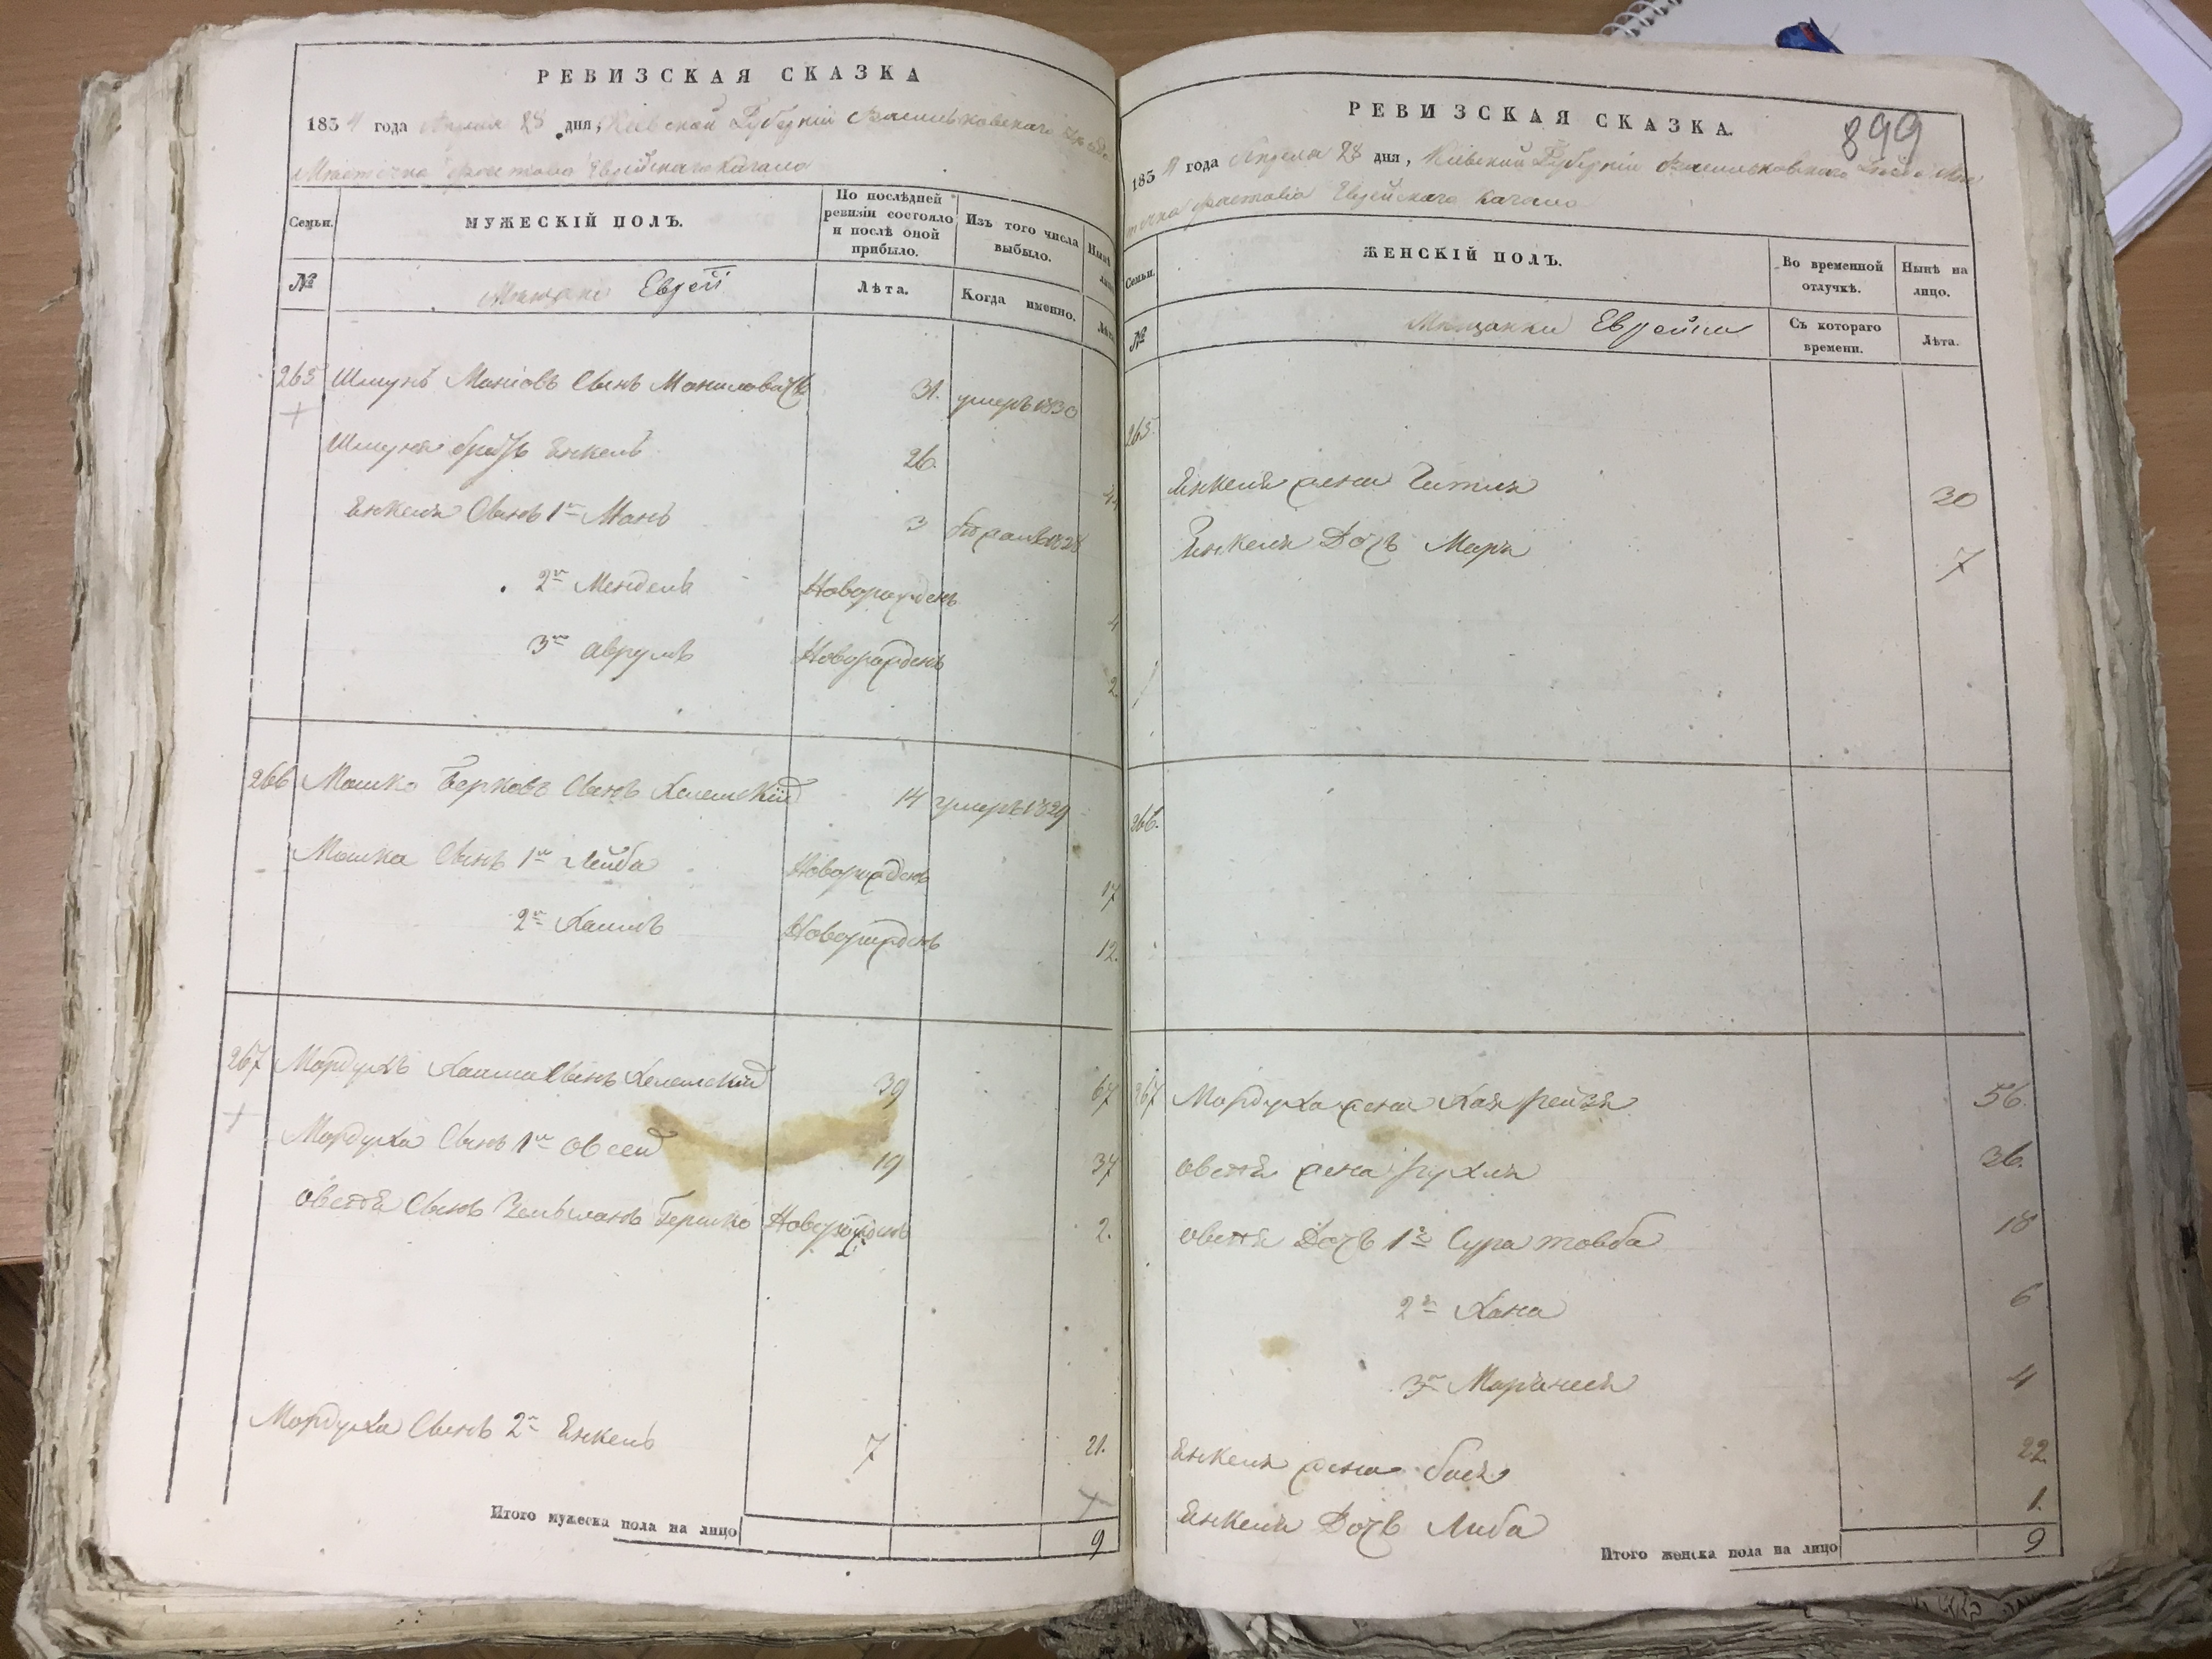 РЕВИЗСКАЯ СКАЗКА
1834 года Апреля 28 дня, Кіевской Губерніи Васильковскаго
Местечка Фастова Еврейскаго Кагала
Семьи.
МУЖЕСКІЙ ПОЛЪ.
По послѣдней ревизіи состояло и послѣ оной прибыло.
Изъ того числа выбыло.
Нынѣ
№
Мѣщане Евреи
Лѣта.
Когда именно.
265 Шмунь Маніовъ Сынъ 31. умеръ 1830
Шмуня братъ Енкель 26.
Енкеля Сынъ 1й Мань 3 1828
2й Мендель Новорожденъ 4
3й Аврумъ Новорожденъ 2.
266 Мошко Берковъ Сынъ 14 умеръ 1829
Мошка Сынъ 1й Лейба Новорожденъ 17
2й Хаимъ Новорожденъ 12.
267 Мордухъ Хаима Сынъ 39 67
Мордуха Сынъ 1й Овсей 19 37
Овсея Сынъ Зельманъ Гершко Новорожденъ 2.
Мордуха Сынъ 2й Енкель 7 21.
Итого мужеска пола на лицо 9
899
РЕВИЗСКАЯ СКАЗКА.
1834 года Апреля 28 дня, Кіевской Губерніи Васильковскаго
Фастова Еврейскаго Кагала
Семьи.
ЖЕНСКІЙ ПОЛЪ.
Во временной отлучкѣ.
Нынѣ на лицо.
№
Мѣщанки Еврейки
Съ котораго времени.
Лѣта.
265.
Енкеля жена 30
Енкеля Дочь 7
266.
267 Мордуха жена Хая Рейзя 56.
Овсея жена Рухля 36.
Овсея Дочь 1я Сура товба 18
2я Хана 6
3я 4
Енкеля жена Бася 22
Енкеля Дочь Либа 1.
Итого женска пола на лицо 9